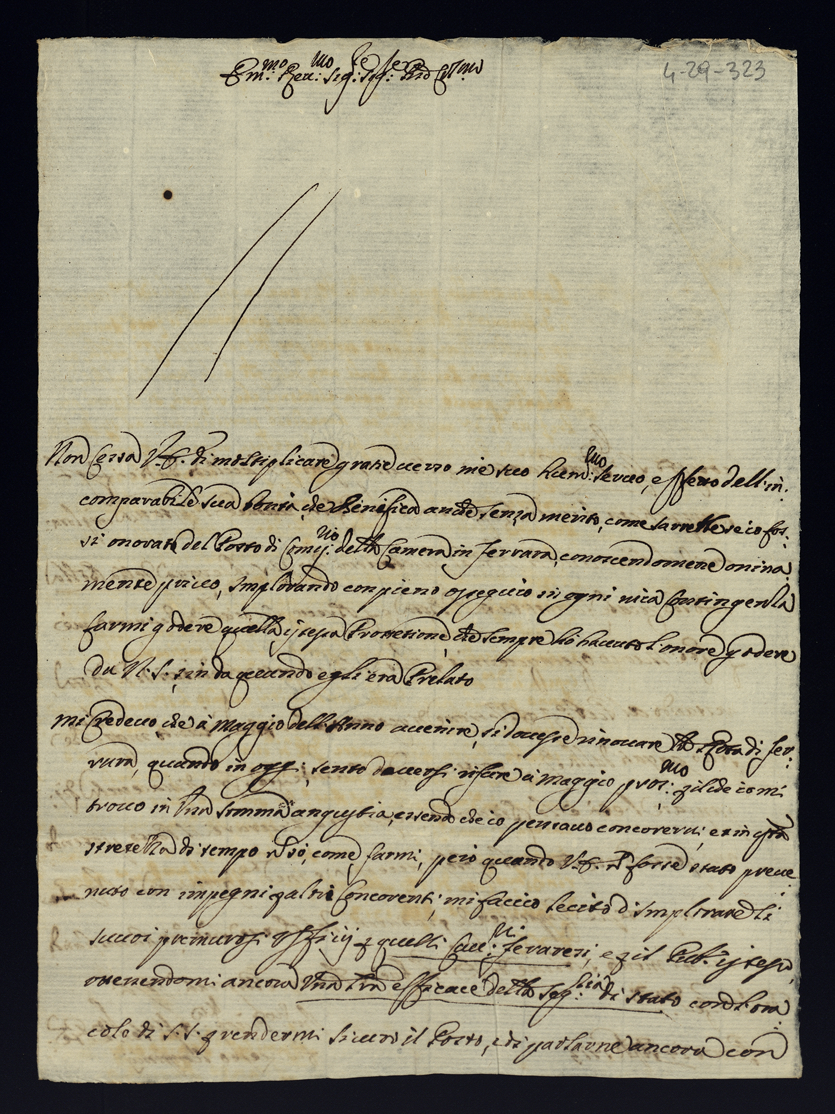 4-29-323
Em.mo Rev.mo Sig.re Sig.re Pro[n] Col.mo
Non Cessa V. E. di moltiplicare gratie verso me suo hum.mo servo, e effetto dell'in-
comparabile sua bontà, che Benifica anche senza merito, come sarebbe se io fos-
si onorato del Posto di Com.rio della Camera in Ferrara, conoscendomene onina
mente privo, Implorando con pieno ossequio in ogni mia Contingenza
farmi godere quella istessa Protettione, che sempre hò hauuto l'onore godere
da N. S., sin da quando egli era Prelato
mi Credeuo che à Maggio dell'Anno auenire, si douesse rinouare di Fer-
rara, quando in oggi, sento douersi rifare à maggio pros.mo, che mi
trouo in Una somma angustia, essendo che io pensauo concorerui, e in
strettezza di tempo non sò, come farmi, però quando V. E. forse stato preue
nuto con impegni altri Concorenti, mi faccio lecito d'implorare li
suoi premurosi Vfficij quelli Cau.ri Feraresi, e il istesso,
ottenendomi ancora Una efficace della Seg.ria di Stato con l'ora
colo di S. S. rendermi sicuro il Posto, e di parlarne ancora con